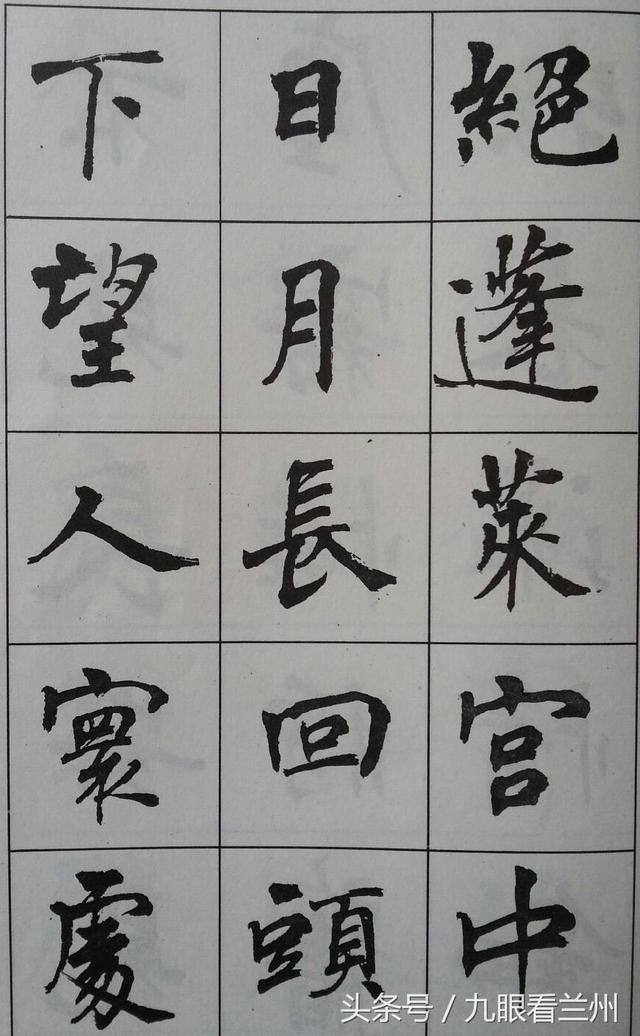 絕蓬萊宮中
日月長回頭
下望人寰處
头条号 / 九眼看兰州